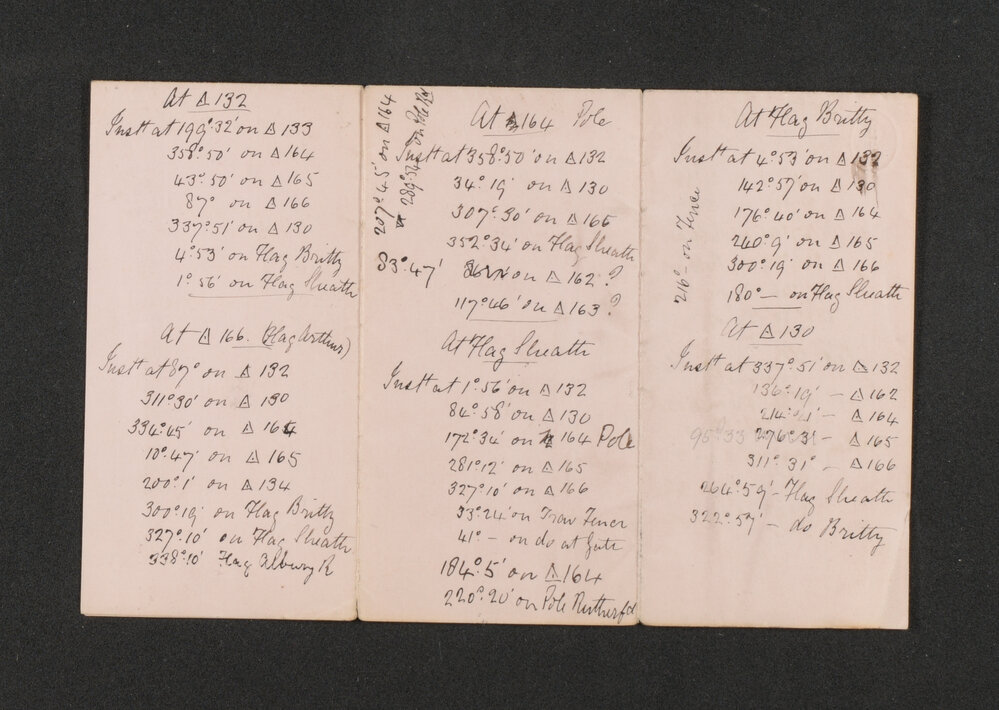 At △ 132
Instt at 199°.32' on △ 133
358°.50' on △ 164
43°.50' on △ 165
87° on △ 166
337°.51' on △ 130
4°.53' on Flag Britty
1°.56' on Flag Sheath
At △ 166. (Flag Arthur)
Instt at 87° on △ 132
311°.30' on △ 130
334°.45' on △ 164
10°.47' on △ 165
200°.1' on △ 134
300°.19' on Flag Britty
327°.10' on Flag Sheath
338°.10' Flag Albury R
207°.45' on △ 164
289°.54' on Pole Rd
At △ 164 Pole
Instt at 358°.50' on △ 132
34°.19' on △ 130
307°.30' on △ 165
352°.34' on Flag Sheath
83°.47' on △ 162 ?
117°.46' on △ 163 ?
At Flag Sheath
Instt at 1°.56' on △ 132
84°.58' on △ 130
172°.34' on 164 Pole
281°.12' on △ 165
327°.10' on △ 166
33°.24' on Trav Fence
41° – on do at Gate
184°.5' on △ 164
220°.20' on Pole Rutherfd
At Flag Britty
Instt at 4°.53' on △ 132
142°.57' on △ 130
176°.40' on △ 164
240°.9' on △ 165
300°.19' on △ 166
180° – on Flag Sheath
216° – on Fence
At △ 130
Instt at 337°.51' on △ 132
136°.19' – △ 162
214°.21' – △ 164
95°33 276°.31' – △ 165
311°.31' – △ 166
264°.59' – Flag Sheath
322°.57' – do Britty